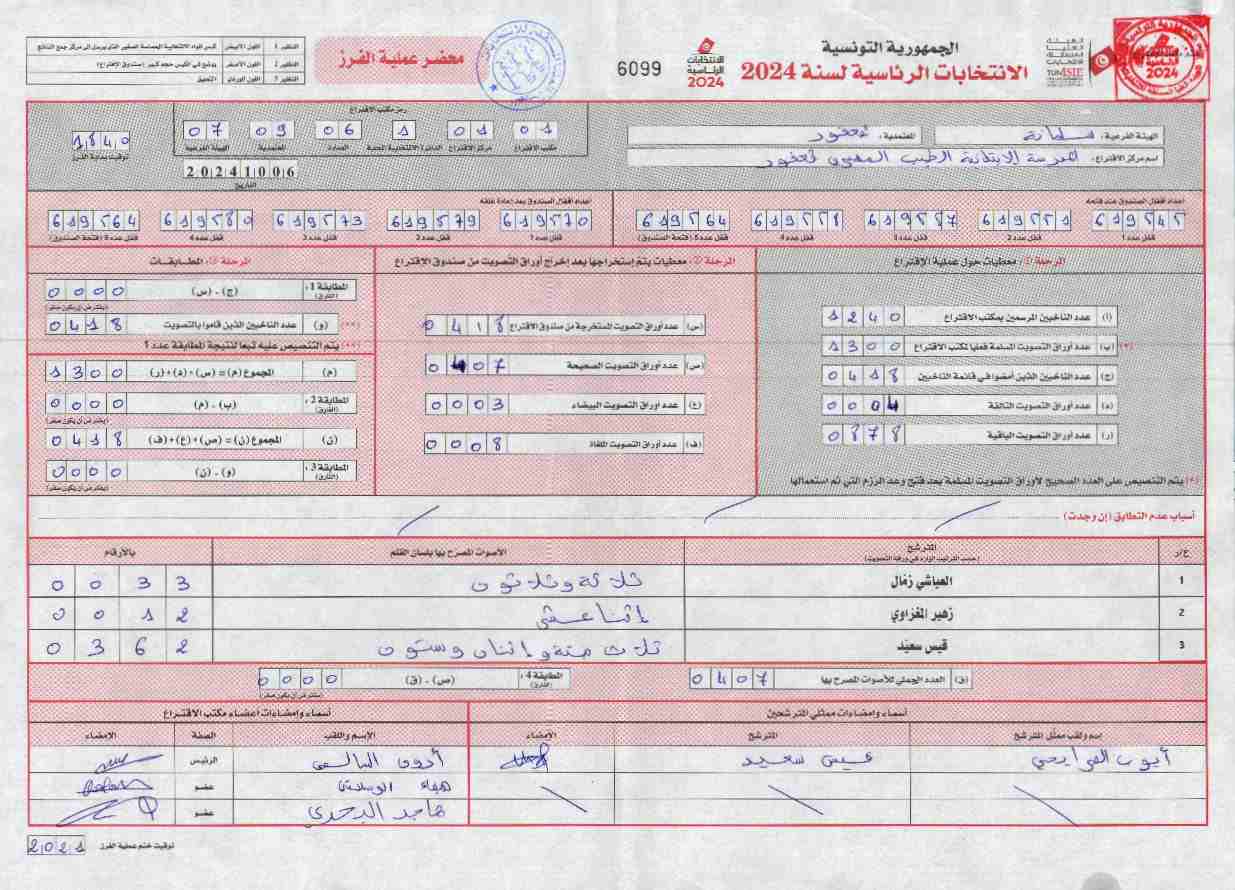 الجمهورية التونسية
الانتخابات الرئاسية لسنة 2024
الهيئة العليا المستقلة للانتخابات
TUNISIE
الانتخابات الرئاسية 2024
6099
محضر عملية الفرز
النظير 1 اللون الأبيض
النظير 2 اللون الأصفر
النظير 3 اللون الوردي التعليق
الهيئة الفرعية: سليانة المعتمدية:
اسم مركز الاقتراع: المدرسة الابتدائية الطيب المهيري
رمز مكتب الاقتراع
01 01 1 06 09 07
مكتب الاقتراع مركز الاقتراع الدائرة الانتخابية المحلية العمادة المعتمدية الهيئة الفرعية
20241006
التاريخ
1840
توقيت بداية الفرز
أعداد أقفال الصندوق عند فتحه
619545 619551 619557 619558 619564
قفل عدد 1 قفل عدد 2 قفل عدد 3 قفل عدد 4 قفل عدد 5 (فتحة الصندوق)
أعداد أقفال الصندوق بعد إعادة غلقه
619570 619579 619573 619580 619564
قفل عدد 1 قفل عدد 2 قفل عدد 3 قفل عدد 4 قفل عدد 5 (فتحة الصندوق)
المرحلة 1: معطيات حول عملية الاقتراع
(أ) عدد الناخبين المرسمين بمكتب الاقتراع 1240
(*) (ب) عدد أوراق التصويت المسلمة فعليا لمكتب الاقتراع 1300
(ج) عدد الناخبين الذين أمضوا في قائمة الناخبين 0418
(د) عدد أوراق التصويت التالفة 0004
(ر) عدد أوراق التصويت الباقية 0878
(*) يتم التنصيص على العدد الصحيح لأوراق التصويت المسلمة بعد فتح وعد الرزم التي تم استعمالها
المرحلة 2: معطيات يتم إستخراجها بعد إخراج أوراق التصويت من صندوق الاقتراع
(س) عدد أوراق التصويت المستخرجة من صندوق الاقتراع 0418
(ص) عدد أوراق التصويت الصحيحة 0407
(ع) عدد أوراق التصويت البيضاء 0003
(ف) عدد أوراق التصويت الملغاة 0008
المرحلة 3: المطابقات
المطابقة 1: (الفارق) (ج) - (س) 0000
(يفترض أن يكون صفر)
(**) (و) عدد الناخبين الذين قاموا بالتصويت 0418
(**) يتم التنصيص عليه تبعا لنتيجة المطابقة عدد 1
(م) المجموع (م) = (س)+(د)+(ر) 1300
المطابقة 2: (الفارق) (ب) - (م) 0000
(يفترض أن يكون صفر)
(ن) المجموع (ن) = (ص)+(ع)+(ف) 0418
المطابقة 3: (الفارق) (و) - (ن) 0000
(يفترض أن يكون صفر)
أسباب عدم التطابق (إن وجدت)
ع/ر المترشح (حسب الترتيب الوارد في ورقة التصويت) الأصوات المصرح بها بلسان القلم بالأرقام
1 العياشي زمّال ثلاثة وثلاثون 0033
2 زهير المغزاوي اثنا عشر 0012
3 قيس سعيّد ثلاث مئة واثنان وستون 0362
(ق) العدد الجملي للأصوات المصرح بها 0407
المطابقة 4: (الفارق) (ص) - (ق) 0000
(يفترض أن يكون صفر)
أسماء وإمضاءات ممثلي المترشحين
إسم ولقب ممثل المترشح المترشح الامضاء
أيوب قيس سعيد
أسماء وإمضاءات أعضاء مكتب الاقتراع
الإسم واللقب الصفة الامضاء
السالمي الرئيس
هيفاء الوسلاتي عضو
هاجر عضو
توقيت ختم عملية الفرز 2021